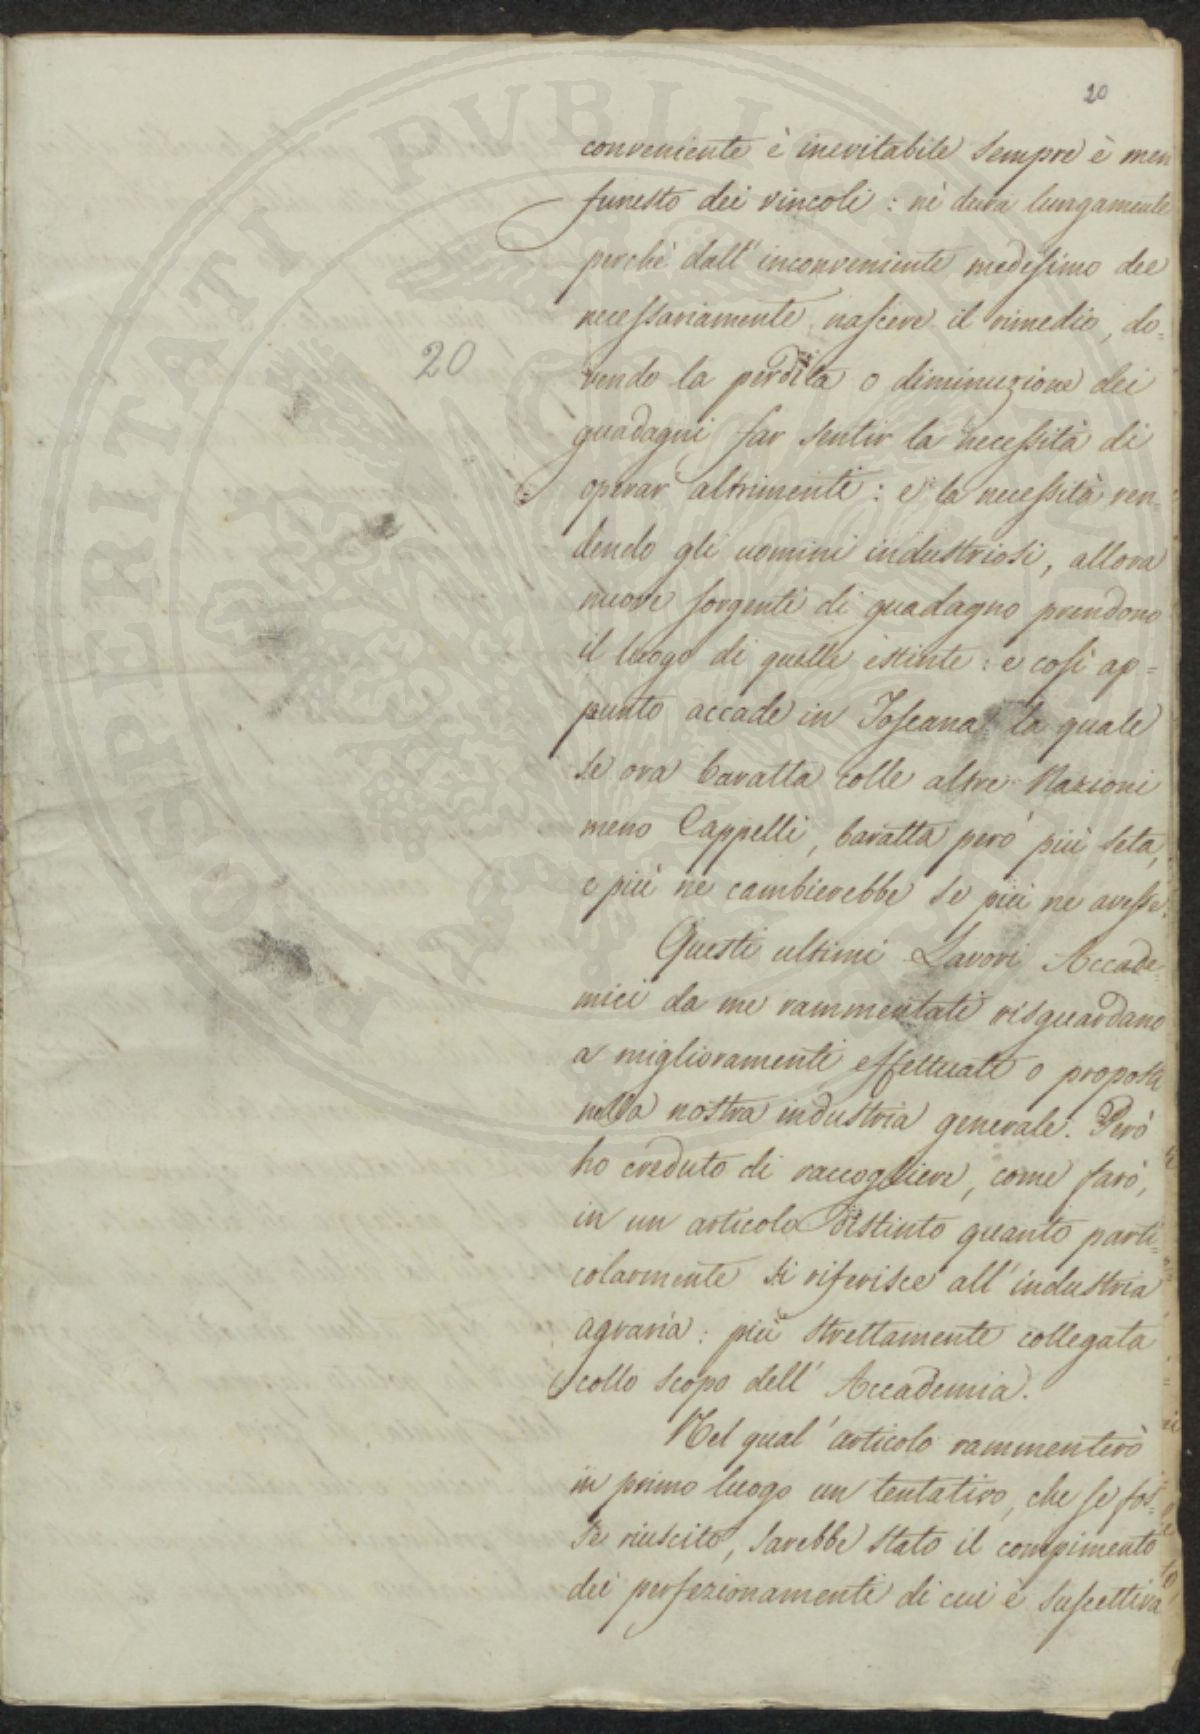 20
conveniente è inevitabile sempre è men
funesto dei vincoli : nè dura lungamente
perchè dall' inconveniente medesimo dee
necessariamente nascere il rimedio, do=
vendo la perdita o diminuzione dei
20
guadagni far sentir la necessità di
operar altrimenti : e la necessità ren-
dendo gli uomini industriosi, allora
nuove sorgenti di guadagno prendono
il luogo di quelle estinte : e così ap=
punto accade in Toscana la quale
se ora baratta colle altre Nazioni
meno Cappelli, baratta però più seta,
e più ne cambierebbe se più ne avesse.
Questi ultimi Lavori Accade-
mici da me rammentati risguardano
a miglioramenti effettuati o proposti
nella nostra industria generale. Però
ho creduto di raccogliere, come farò,
in un articolo distinto quanto parti=
colarmente si riferisce all' industria
agraria : più strettamente collegata
collo scopo dell' Accademia.
Nel qual' articolo rammenterò
in primo luogo un tentativo, che se fos=
se riuscito, sarebbe stato il compimento
dei perfezionamenti di cui è suscettiva
PROSPERITATI PUBLICAE